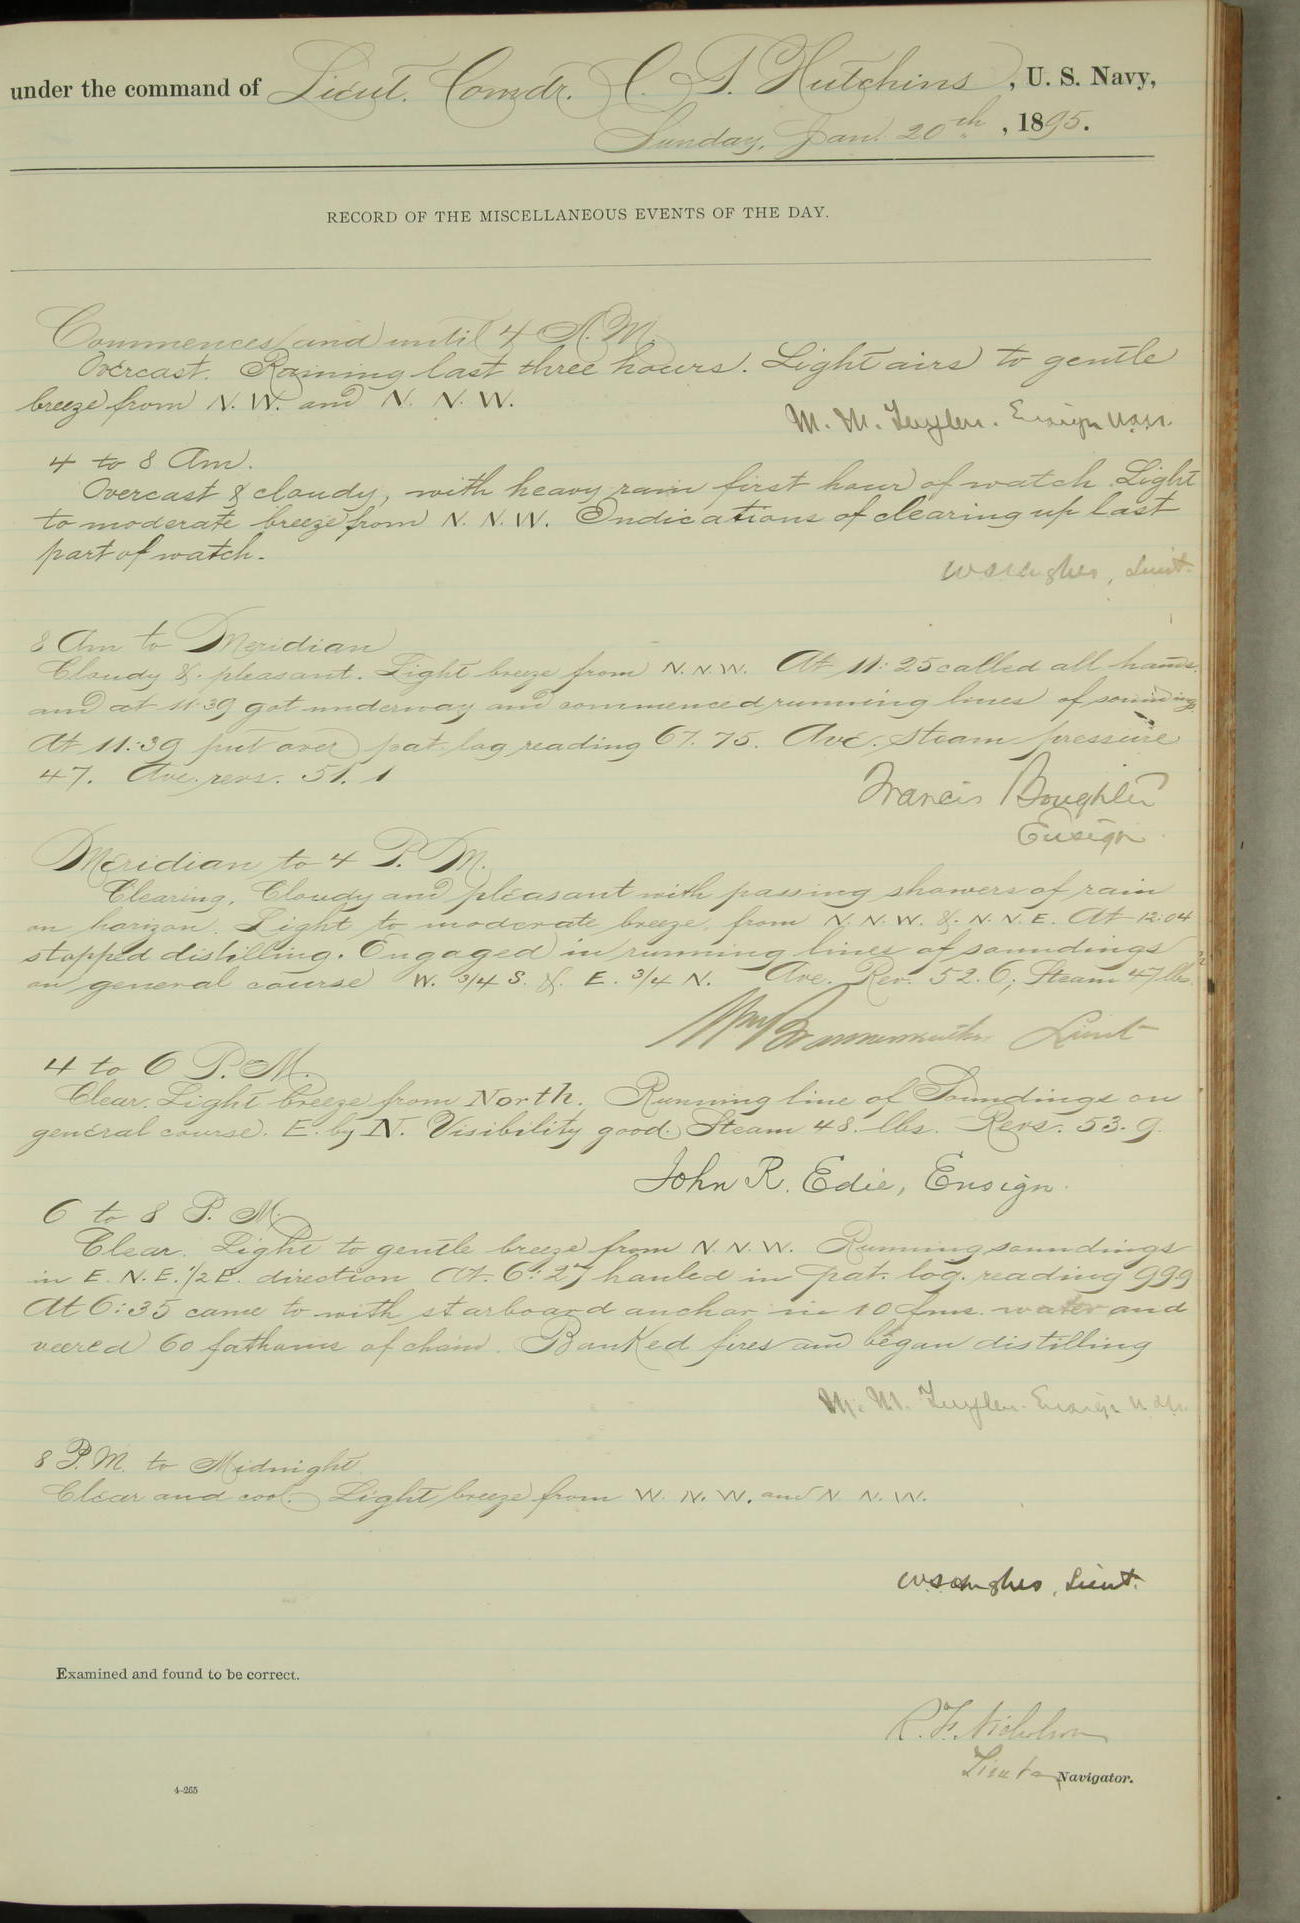 under the command of Lieut. Comdr. C. T. Hutchins, U. S. Navy,
Sunday, Jan. 20th, 1895.
RECORD OF THE MISCELLANEOUS EVENTS OF THE DAY.
Commences and until 4 A.M.
Overcast. Raining last three hours. Light airs to gentle
breeze from N.W. and N. N.W.
M. M. Taylor. Ensign U.S.N.
4 to 8 Am.
Overcast & cloudy, with heavy rain first hour of watch. Light
to moderate breeze from N. N.W. Indications of clearing up last
part of watch.
W S Hughes, Lieut.
8 Am to Meridian
Cloudy & pleasant. Light breeze from N.N.W. At 11:25 called all hands
and at 11:39 got underway and commenced running lines of soundings
At 11:39 put over pat. log reading 67.75. Ave. steam pressure
47. Ave. revs. 51.1
Francis Boughter
Ensign
Meridian to 4 P. M.
Clearing. Cloudy and pleasant with passing showers of rain
on horizon. Light to moderate breeze from N.N.W. & N.N.E. At 12:04
stopped distilling. Engaged in running lines of soundings
on general course W. 3/4 S. & E. 3/4 N. Ave. Rev. 52.6; Steam 47 lbs.
Lieut
4 to 6 P.M.
Clear. Light breeze from North. Running line of Soundings on
general course. E. by N. Visibility good. Steam 48. lbs. Revs. 53.9.
John R. Edie, Ensign.
6 to 8 P. M.
Clear. Light to gentle breeze from N.N.W. Running soundings
in E. N.E. 1/2 E. direction At. 6:27 hauled in pat. log. reading 99.9
At 6:35 came to with starboard anchor in 10 fms. water and
veered 60 fathoms of chain. Banked fires and began distilling
M. M. Taylor. Ensign U.S.N.
8 P.M. to Midnight
Clear and cool. Light breeze from W. N.W. and N N.W.
W S Hughes, Lieut.
Examined and found to be correct.
R. F. Nicholson
Lieut., Navigator.
4-265